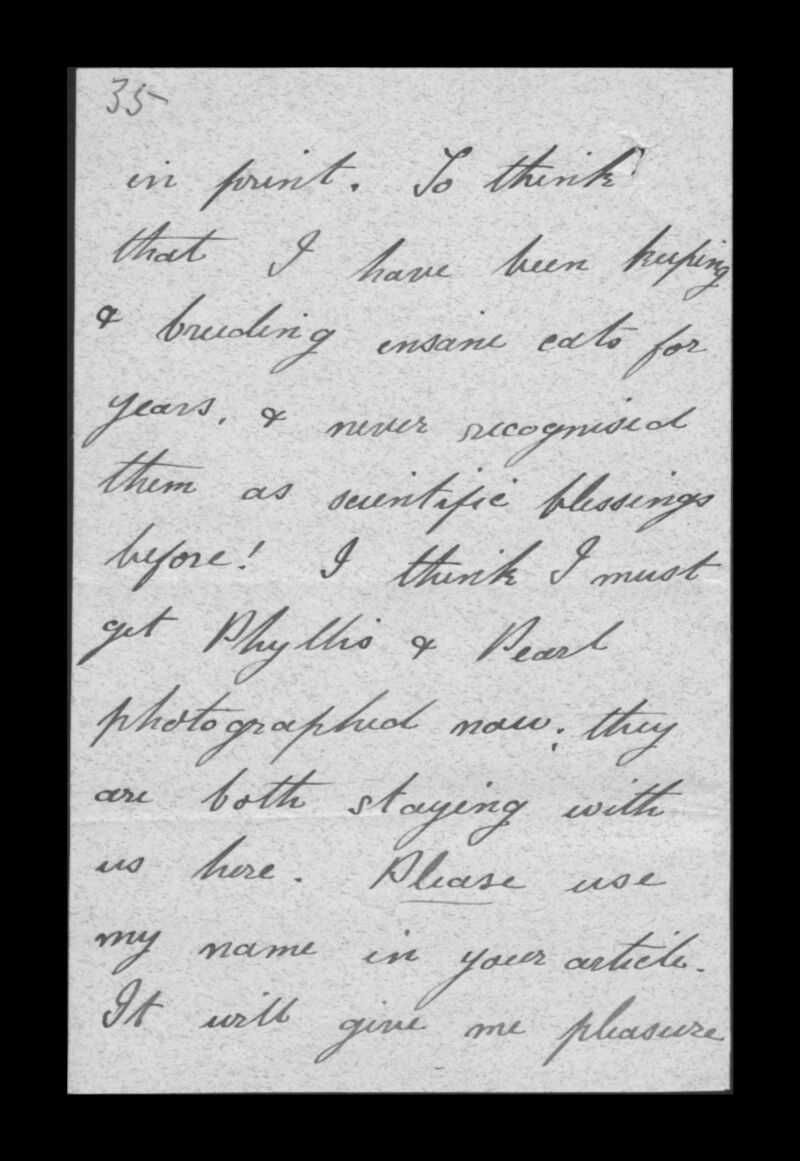 35
in print. To think
that I have been keeping
& breeding insane cats for
years, & never recognised
them as scientific blessings
before! I think I must
get Phyllis & Pearl
photographed now; they
are both staying with
us here. Please use
my name in your article.
It will give me pleasure